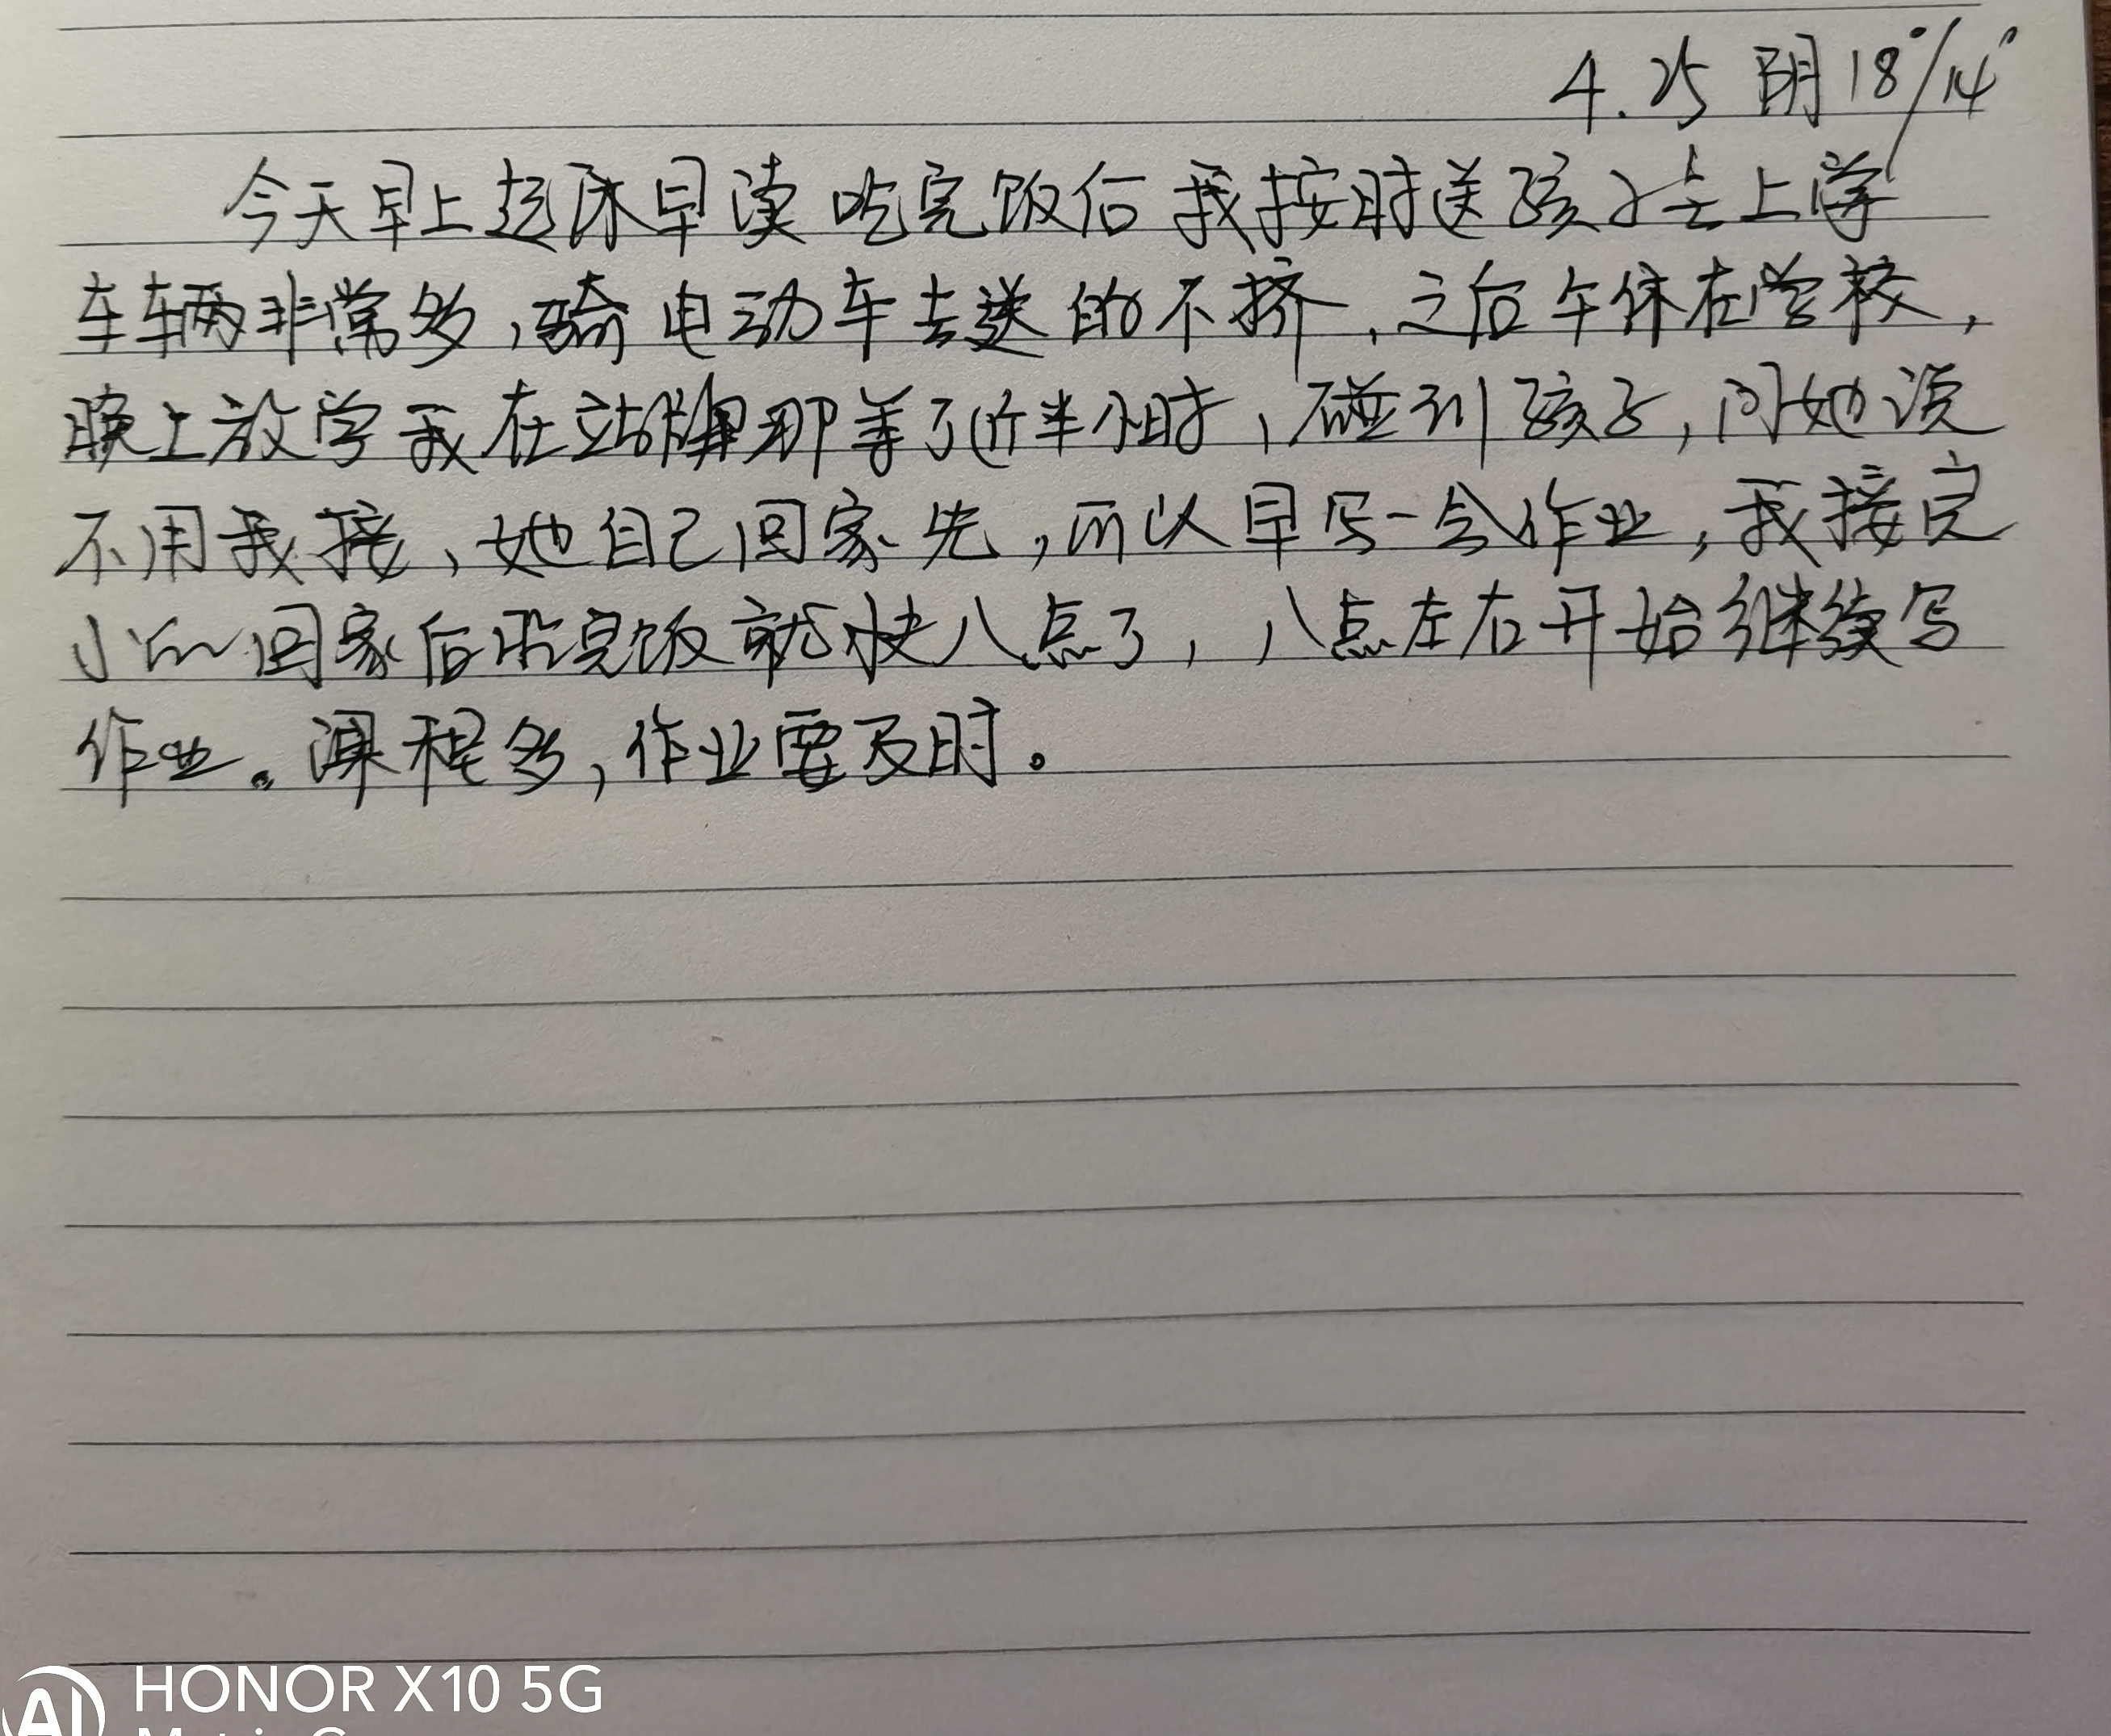 4.25 阴 18°/14°
今天早上起床早读 吃完饭后 我按时送孩子去上学
车辆非常多,骑电动车去送的不挤,之后午休在学校,
晚上放学我在站牌那等了近半小时,碰到孩子,问她说
不用我接,她自己回家先,所以早写一会作业,我接完
小的回家后吃完饭就快八点了,八点左右开始继续写
作业。课程多,作业要及时。
HONOR X10 5G